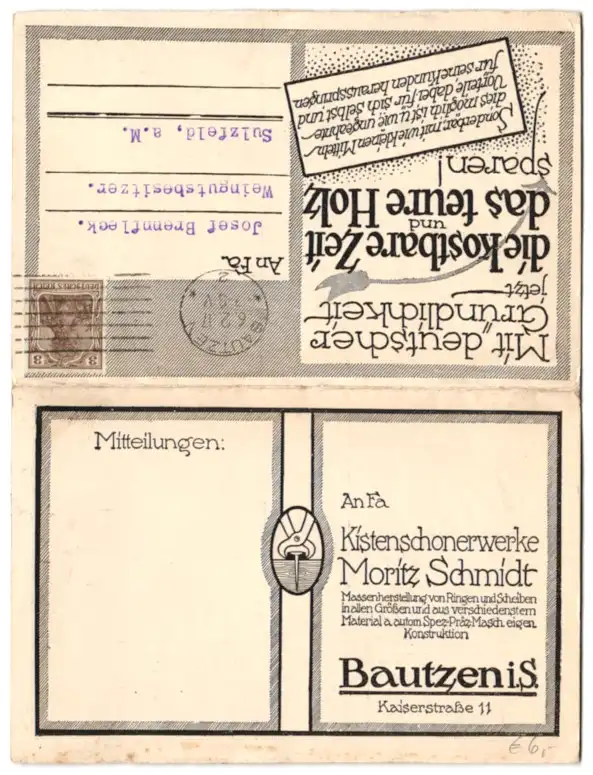 Mit "deutscher
Gründlichkeit"
jetzt
die kostbare Zeit
und
das teure Holz
sparen!
Sonderbar, mit wie kleinen Mitteln
dies möglich ist u. wie ungeahnte
Vorteile dabei für sich selbst und
für seine Kunden herausspringen
3
DEUTSCHES REICH
BAUTZEN
6.2.17
2
An Fa.
Josef Brennfleck.
Weingutsbesitzer.
Sulzfeld, a.M.
Mitteilungen:
An Fa.
Kistenschonerwerke
Moritz Schmidt
Massenherstellung von Ringen und Scheiben
in allen Größen und aus verschiedenstem
Material a. autom. Spez.-Präz.-Masch. eigen.
Konstruktion
Bautzen i S.
Kaiserstraße 11
€ 6,-